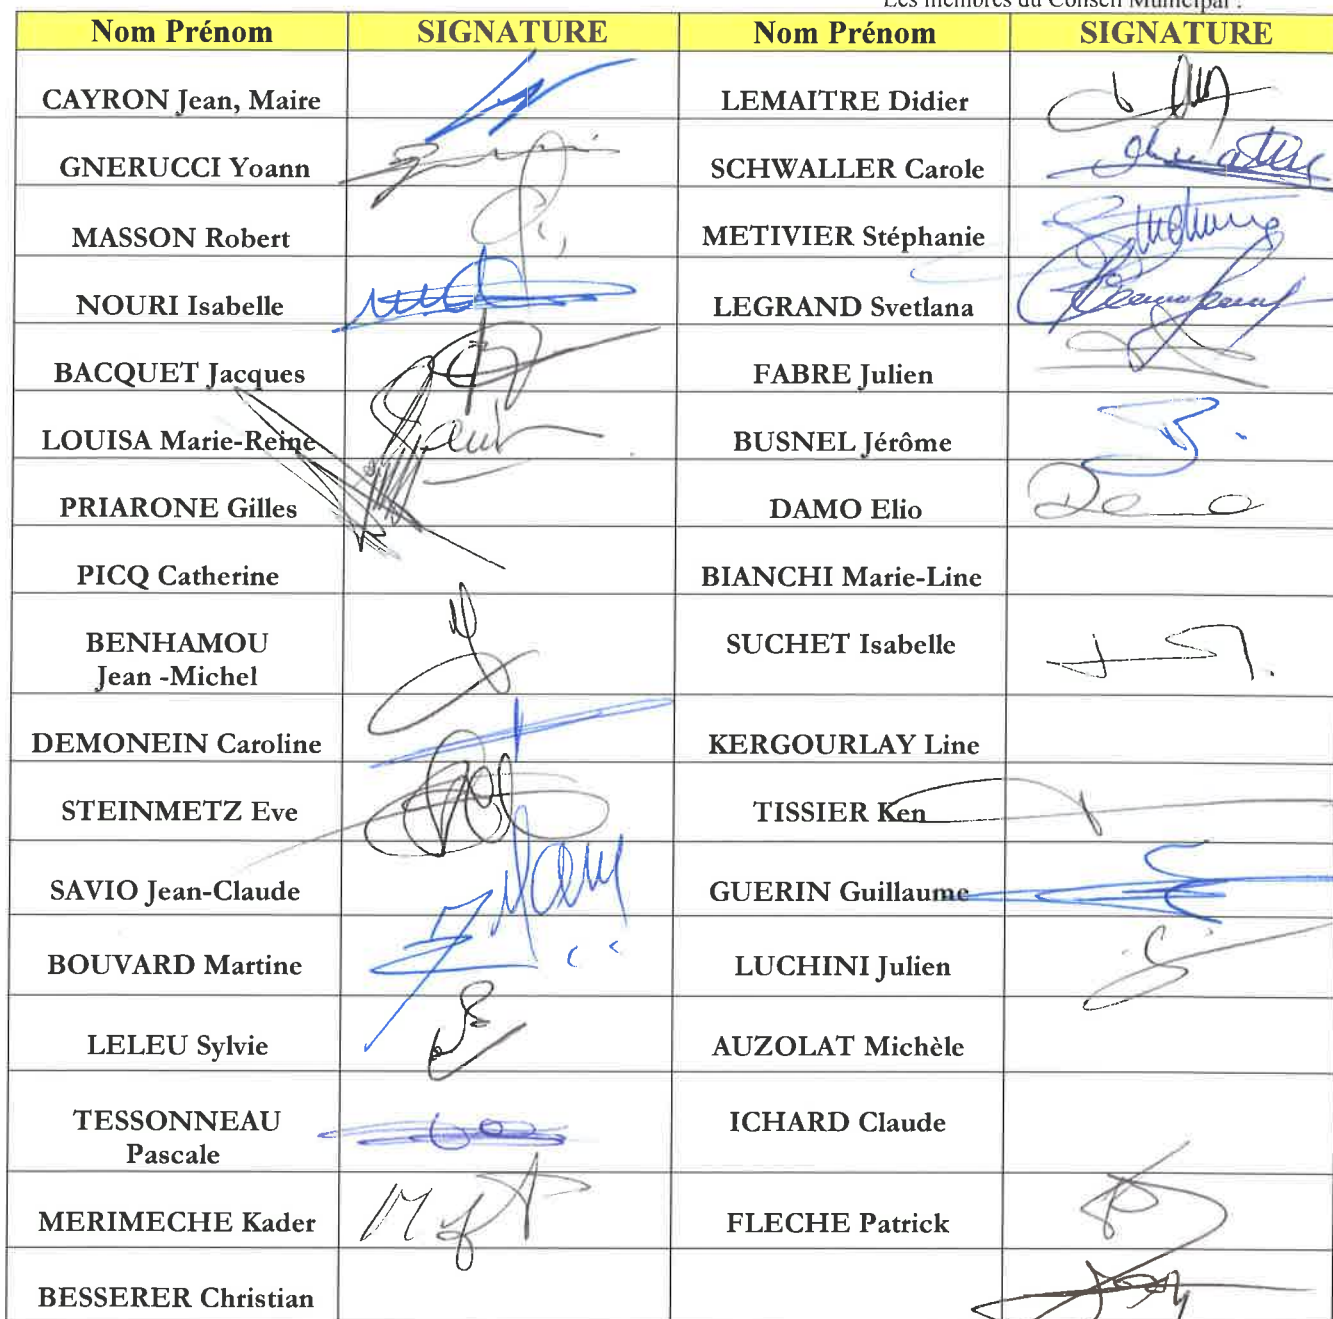 Les membres du Conseil Municipal :
Nom Prénom SIGNATURE Nom Prénom SIGNATURE
CAYRON Jean, Maire LEMAITRE Didier
GNERUCCI Yoann SCHWALLER Carole
MASSON Robert METIVIER Stéphanie
NOURI Isabelle LEGRAND Svetlana
BACQUET Jacques FABRE Julien
LOUISA Marie-Reine BUSNEL Jérôme
PRIARONE Gilles DAMO Elio
PICQ Catherine BIANCHI Marie-Line
BENHAMOU SUCHET Isabelle
Jean -Michel
DEMONEIN Caroline KERGOURLAY Line
STEINMETZ Eve TISSIER Ken
SAVIO Jean-Claude GUERIN Guillaume
BOUVARD Martine LUCHINI Julien
LELEU Sylvie AUZOLAT Michèle
TESSONNEAU ICHARD Claude
Pascale
MERIMECHE Kader FLECHE Patrick
BESSERER Christian